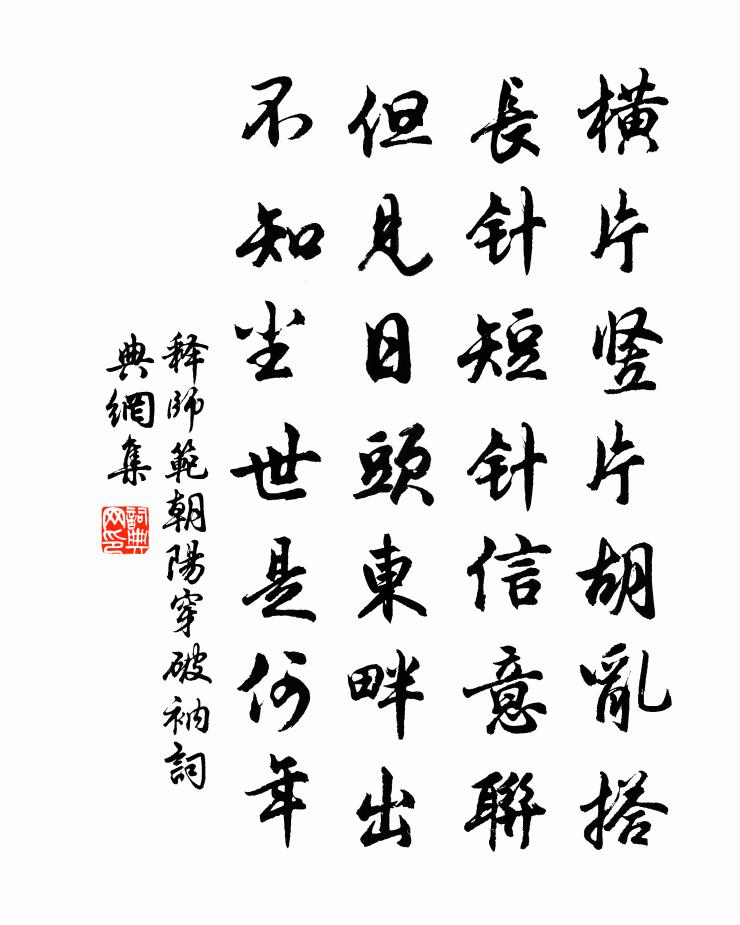 橫片竖片胡亂搭
長针短针信意聯
但見日頭東畔出
不知尘世是何年
释師範朝陽穿破衲詞
典網集
詞典
网印